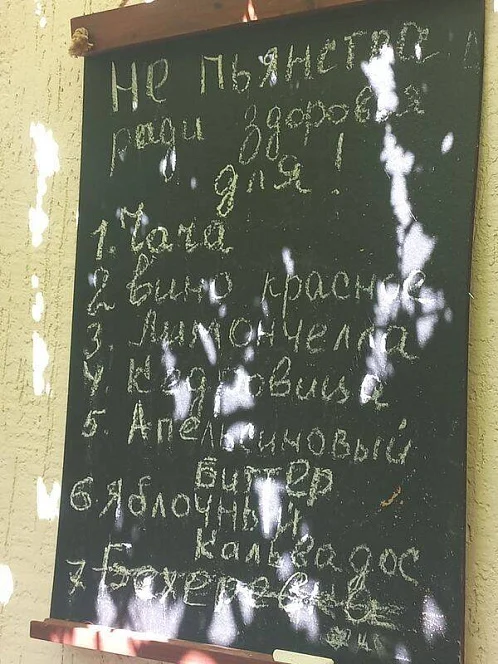 Не пьянства
ради здоровья
для!
1. Чача
2 вино красное
3 Лимончелла
4 Кедровица
5. Апельсиновый
Биттер
6 Яблочный
Кальвадос